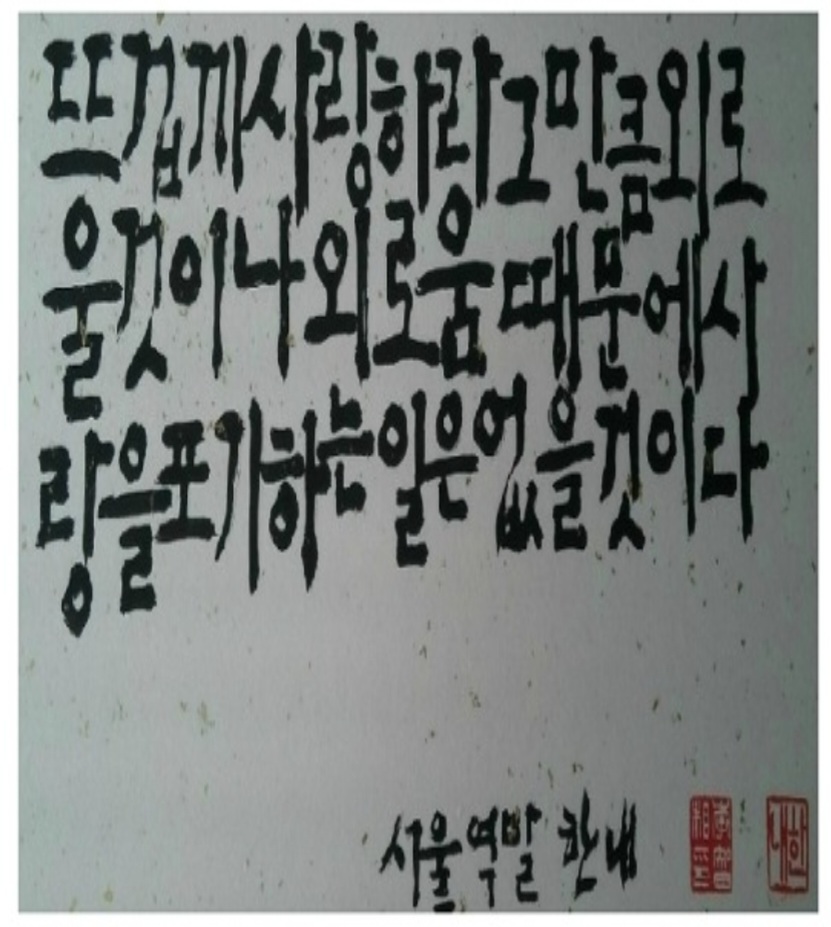 뜨겁게사랑하라그만큼외로
울것이나외로움때문에사
랑을포기하는일은없을것이다
서울역발 한내
한내